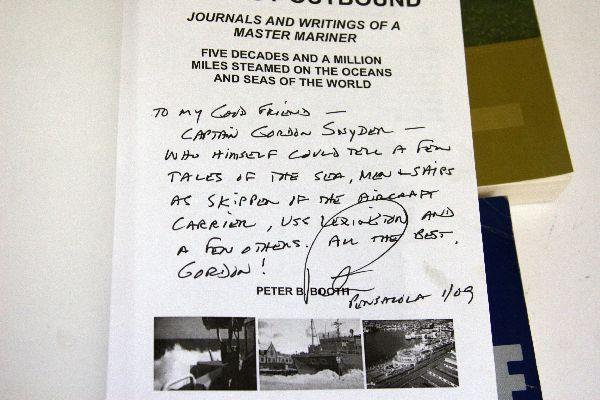 OUTBOUND
JOURNALS AND WRITINGS OF A
MASTER MARINER
FIVE DECADES AND A MILLION
MILES STEAMED ON THE OCEANS
AND SEAS OF THE WORLD
TO MY GOOD FRIEND —
CAPTAIN GORDON SNYDER —
WHO HIMSELF COULD TELL A FEW
TALES OF THE SEA, MEN & SHIPS
AS SKIPPER OF THE AIRCRAFT
CARRIER, USS LEXINGTON AND
A FEW OTHERS. ALL THE BEST,
GORDON!
PETER B. BOOTH
PENSACOLA 1/09